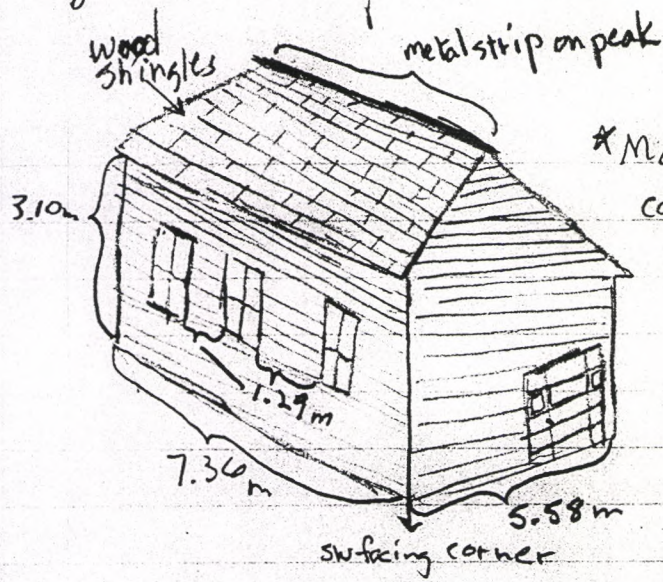 wood
shingles
metal strip on peak
3.10m
1.29 m
7.36 m
5.58 m
sw facing corner